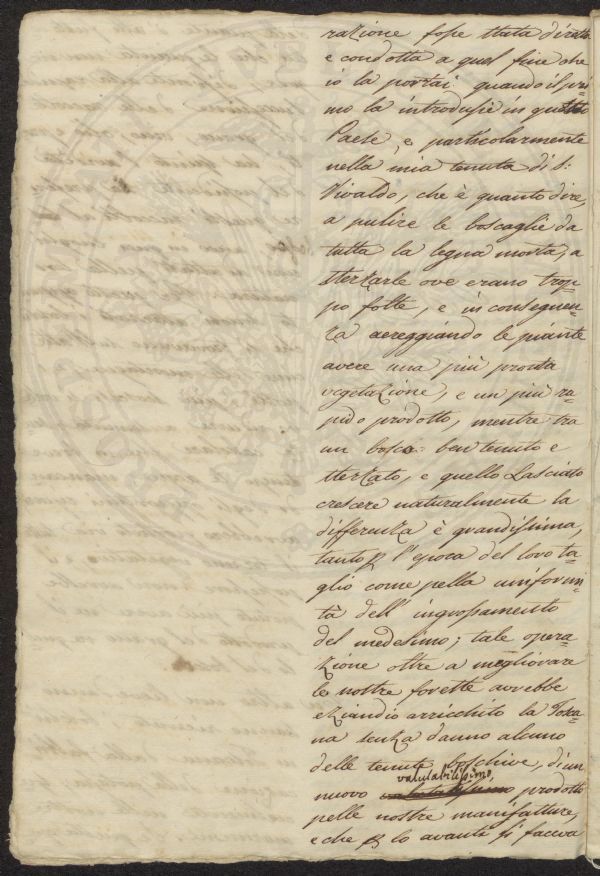 razione fosse stata diretta
e condotta a quel fine che
io la portai quando il pri-
mo la introdussi in questo
Paese, e particolarmente
nella mia tenuta di S:
Vivaldo, che è quanto dire,
a pulire le boscaglie da
tutta la legna morta, a
sterzarle ove erano trop-
po folte, e in conseguen-
za aereggiando le piante
avere una più pronta
vegetazione, e un più ra-
pido prodotto, mentre tra
un bosco ben tenuto e
sterzato, e quello lasciato
crescere naturalmente la
differenza è grandissima,
tanto p l'epoca del loro ta-
glio come pella uniformi-
tà dell'ingrossamento
del medesimo; tale opera-
zione oltre a megliorare
le nostre foreste avrebbe
eziandio arricchito la Tosca-
na senza danno alcuno
delle tenute boschive, di un
valutabilissimo,
nuovo prodotto
pelle nostre manifatture,
e che p lo avanti si faceva